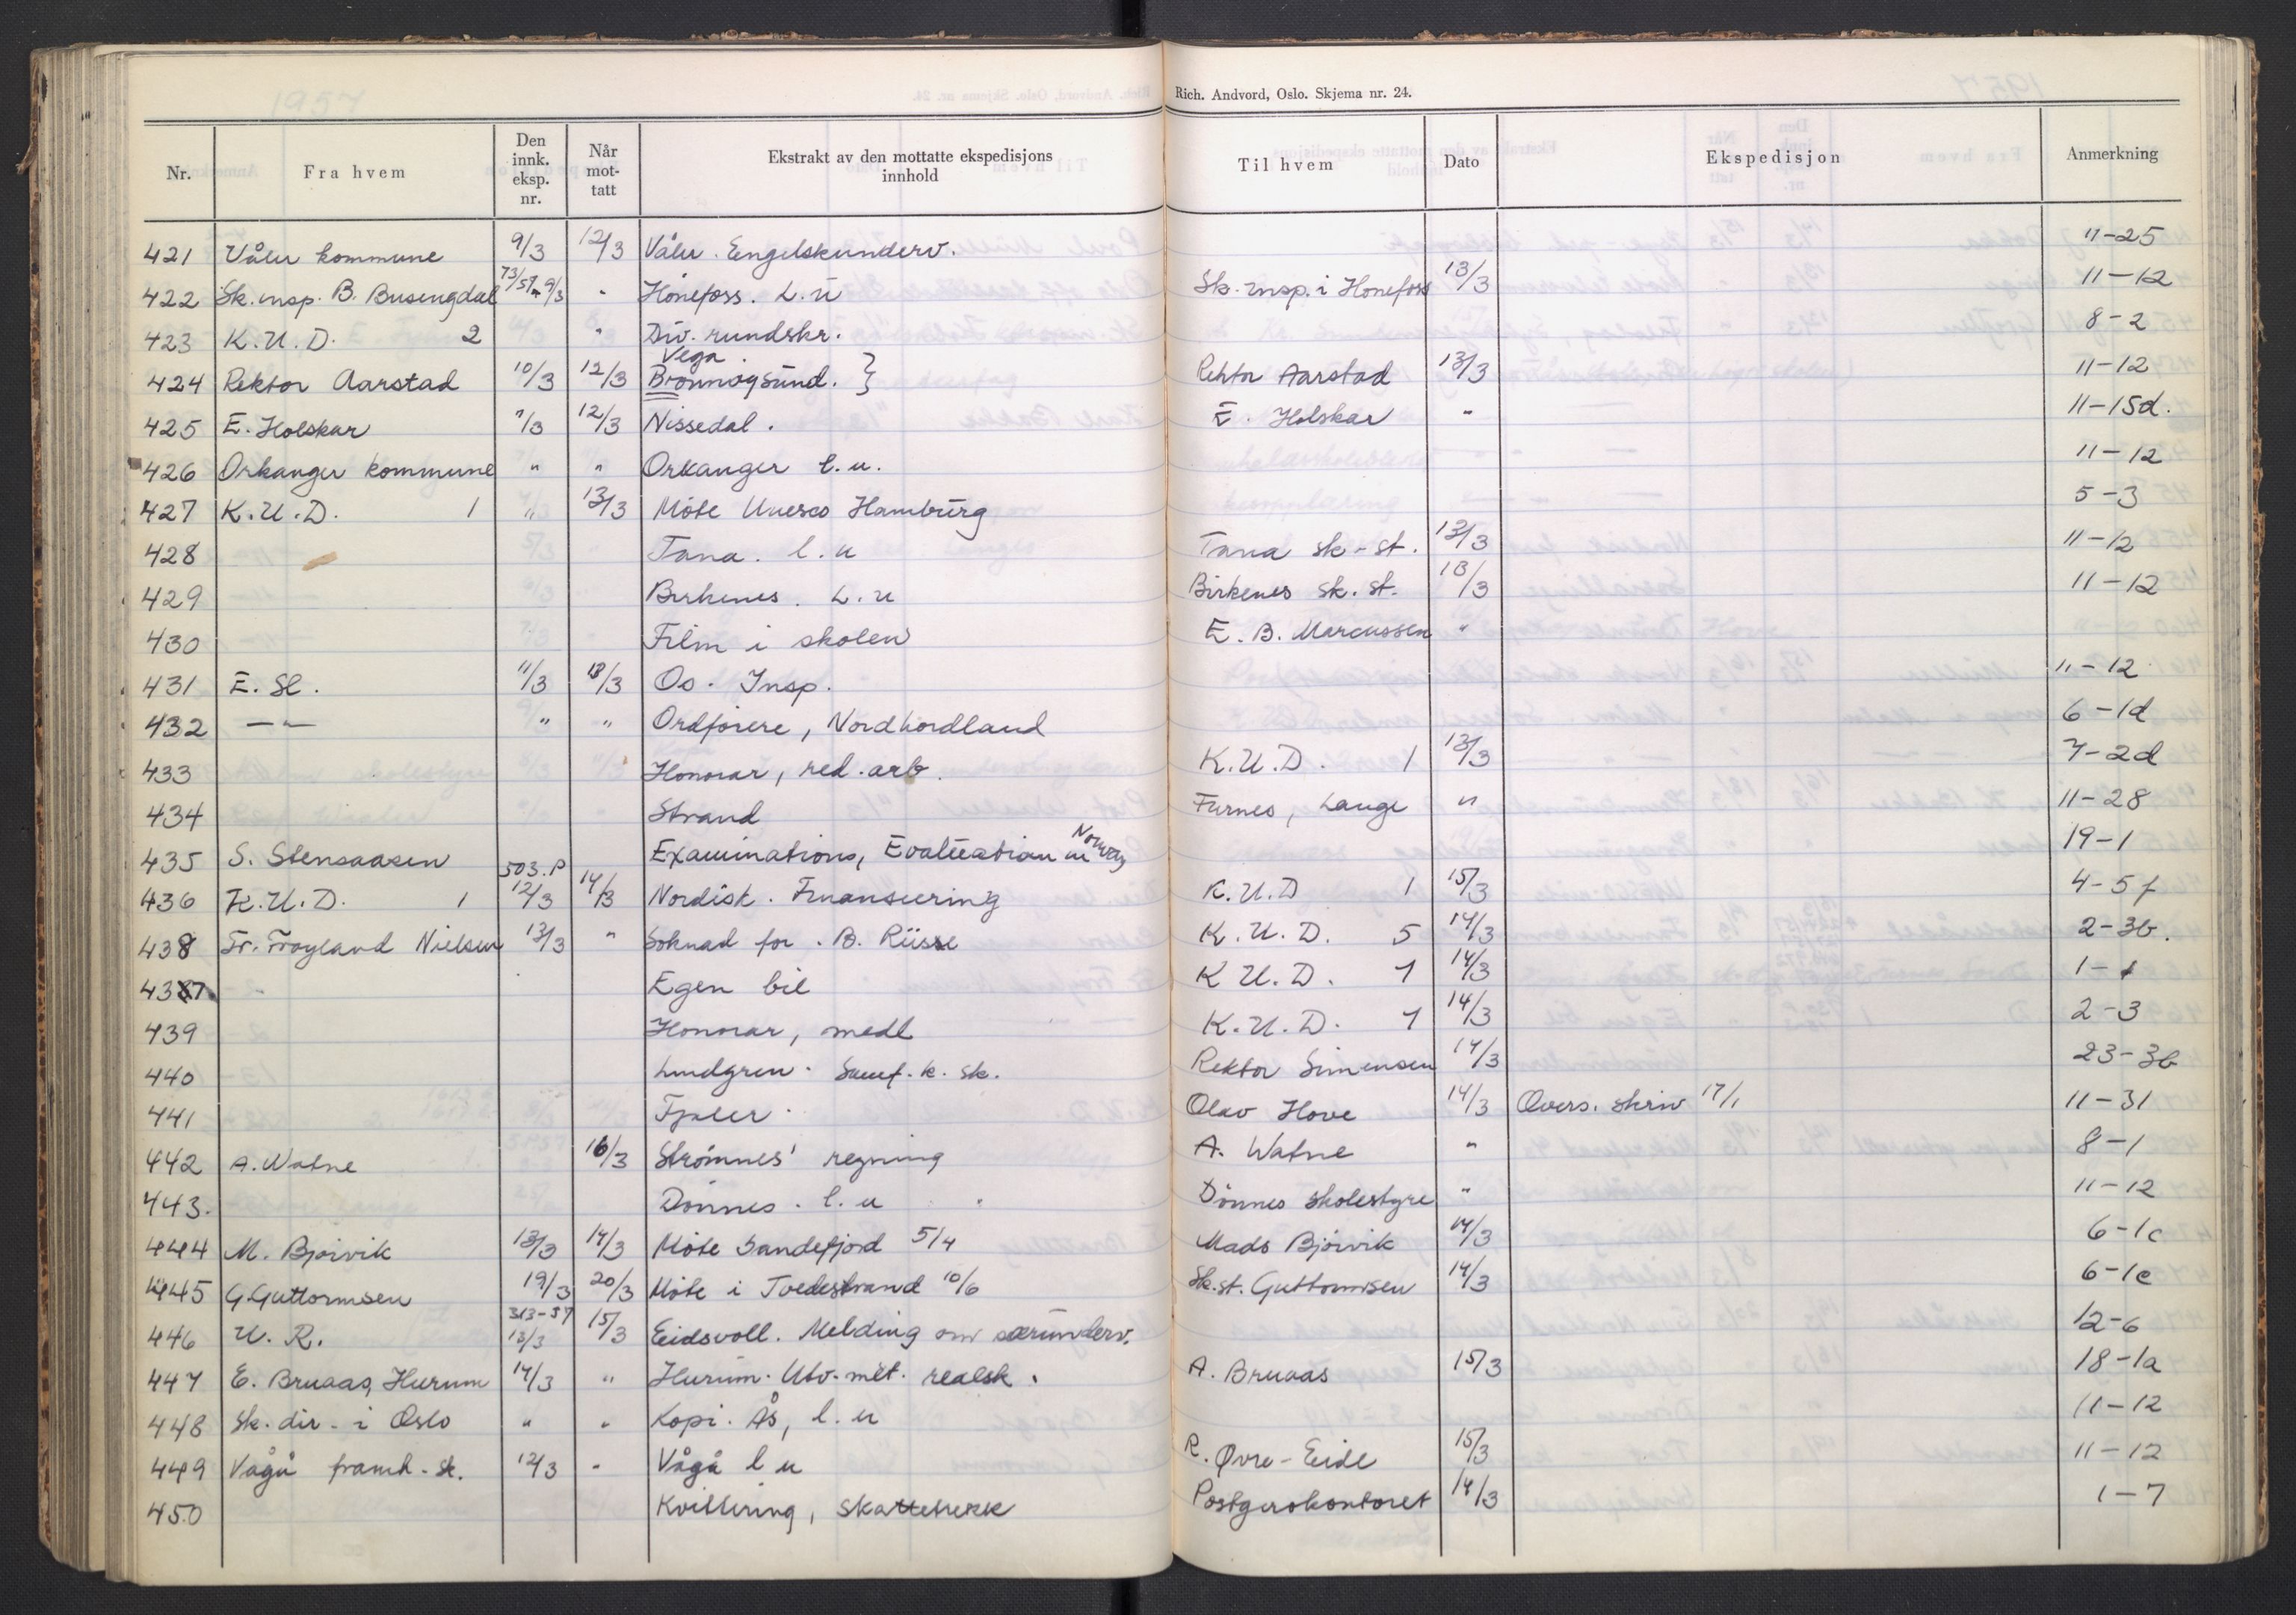 1957
Rich. Andvord, Oslo. Skjema nr. 24.
Nr. Fra hvem Den innk. eksp. nr. Når mot- tatt Ekstrakt av den mottatte ekspedisjons innhold Til hvem Dato Ekspedisjon Anmerkning
421 Våler kommune 9/3 12/3 Våler. Engelskunderv. 11-25
422 Sk.insp. B. Busengdal 73/57 - 9/3 " Hönefoss. L.u Sk.insp. i Hönefoss 13/3 11-12
423 K.U.D. 2 " Div. rundskr. 8-2
424 Rektor Aarstad 10/3 12/3 Vega. Brönnöysund. } Rektor Aarstad 13/3 11-12
425 E. Holskar "/3 12/3 Nissedal. E. Holskar " 11-15d.
426 Orkanger kommune " " Orkanger l.u. 11-12
427 K.U.D. 1 " 13/3 Möte Unesco Hamburg 5-3
428 Tana. l.u Tana sk-st. 13/3 11-12
429 Birkenes. L.u Birkenes sk.st. 13/3 11-12
430 Film i skolen E.B. Marcussen "
431 E. Sl. 11/3 13/3 Os. Insp. 11-12
432 — " — " " Ordförere, Nordhordland 6-1d
433 Honorar, red.arb. K.U.D. 1 13/3 7-2d
434 Strand Furnes, Lange " 11-28
435 S. Stensaasen Examinations, Evaluation in Norway 19-1
436 K.U.D. 1 503.P 12/3 14/3 Nordisk. Finansiering K.U.D 1 15/3 4-5f
438 Fr. Fröyland Nielsen 13/3 " Söknad for. B. Riisse K.U.D. 5 14/3 2-3b.
437 Egen bil K.U.D. 1 14/3 1-1
439 Honorar, medl K.U.D. 1 14/3 2-3
440 Lindgren. Samf.k.sk. Rektor Simensen 14/3 23-3b
441 Fjaler. Olav Hove 14/3 Overs. skriv 17/1 11-31
442 A. Watne 16/3 Strömnes' regning A. Watne " 8-1
443. Dönnes. l.u Dönnes skolestyre " 11-12
444 M. Björvik 13/3 14/3 Möte Sandefjord 5/4 Mads Björvik 14/3 6-1c
445 G. Guttormsen 19/3 20/3 Möte i Tvedestrand 10/6 Sk.st. Guttormsen 14/3 6-1c
446 U.R. 313-57 13/3 15/3 Eidsvoll. Melding om særunderv. 12-6
447 E. Bruaas, Hurum 14/3 " Hurum. Utv. mlt. realsk. A. Bruaas 15/3 18-1a
448 Sk.dir. i Oslo " " Kopi. Ås, l.u 11-12
449 Vågå framh.sk. 12/3 " Vågå l u R. Øvre-Eide 15/3 11-12
450 Kvittering, skattetrekk Postgirokontoret 14/3 1-7